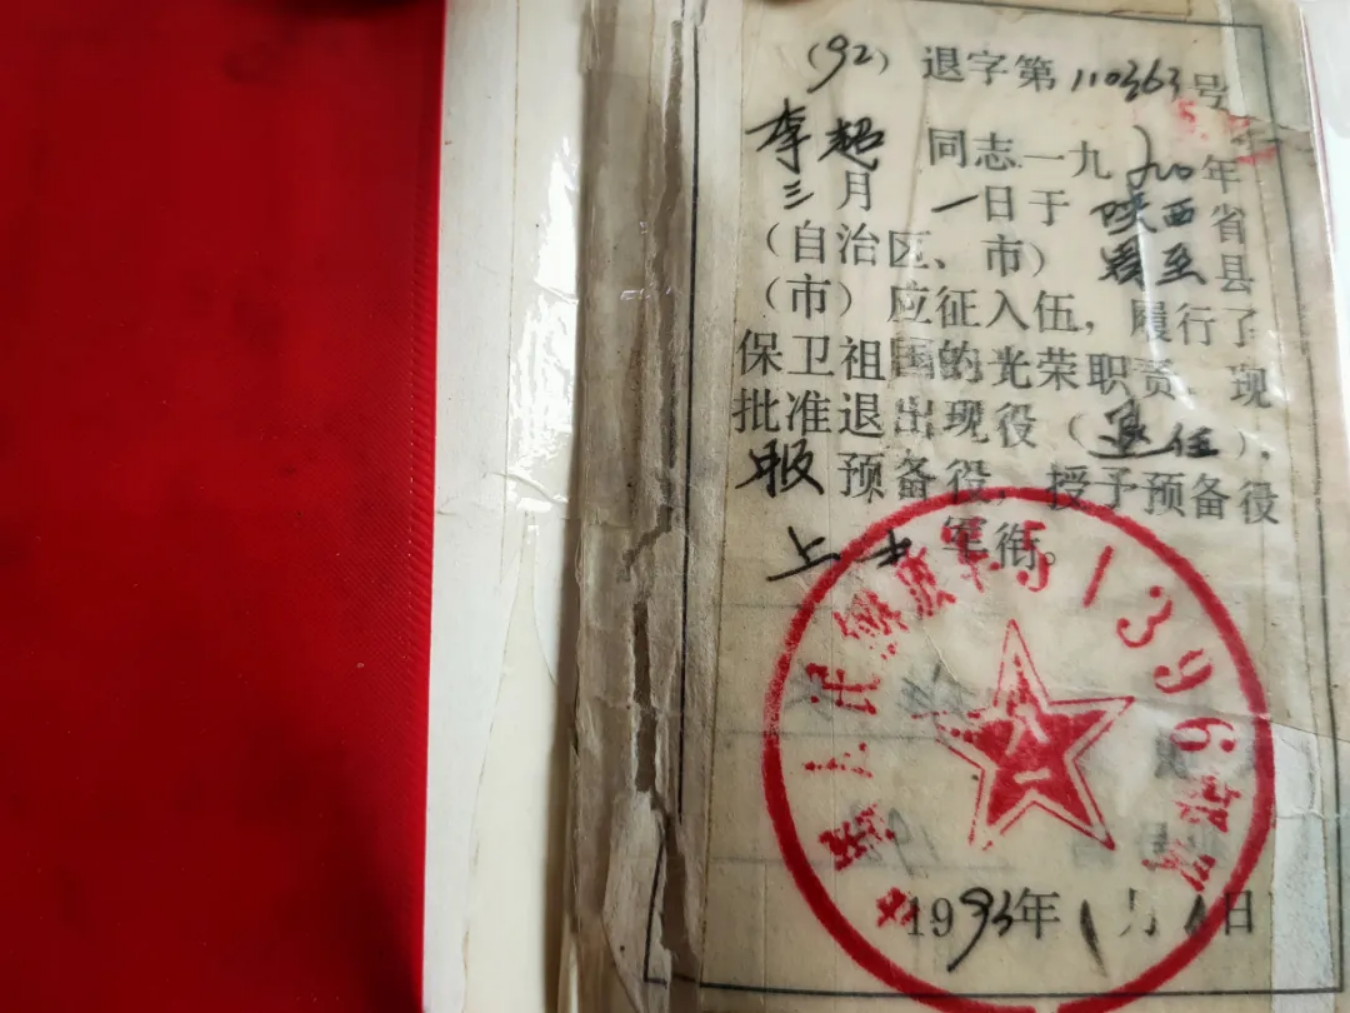 （92）退字第110363号
李超 同志一九九〇年
三月 一日于陕西省
（自治区、市） 周至县
（市）应征入伍，履行了
保卫祖国的光荣职责。现
批准退出现役（退伍），
服预备役，授予预备役
上士军衔。
中国人民解放军五1396部队
1993年1月1日